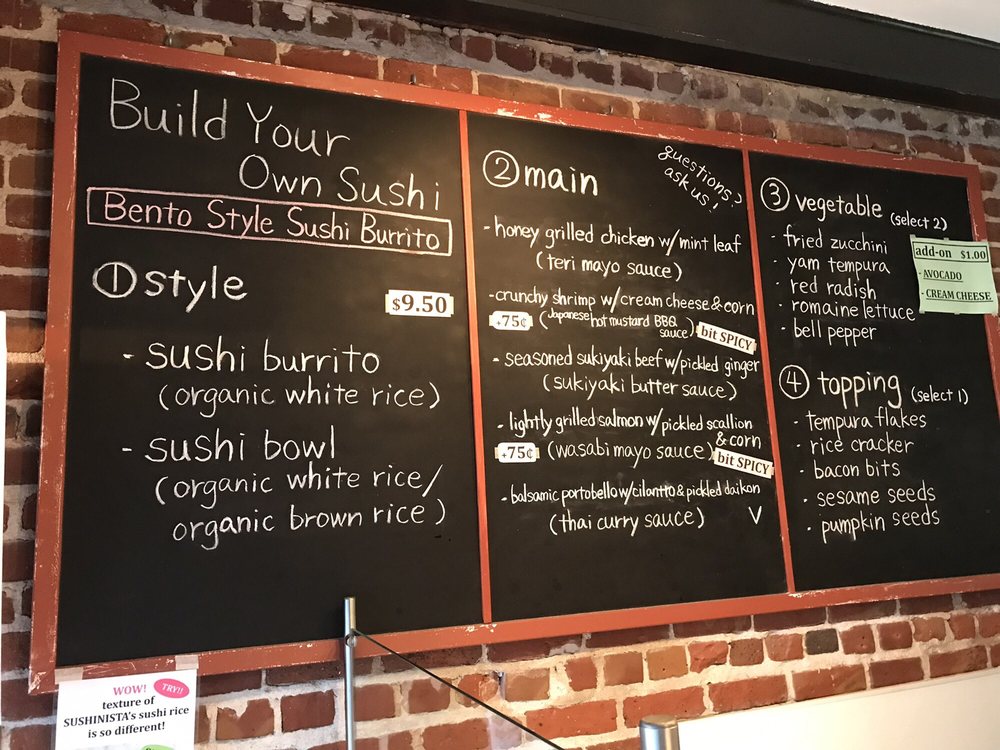 Build Your
Own Sushi
Bento Style Sushi Burrito
① style
$9.50
- sushi burrito
(organic white rice)
- sushi bowl
(organic white rice/
organic brown rice)
② main
questions?
ask us!
- honey grilled chicken w/ mint leaf
(teri mayo sauce)
- crunchy shrimp w/cream cheese & corn
+75¢ (Japanese hot mustard BBQ sauce) bit SPICY
- seasoned sukiyaki beef w/pickled ginger
(sukiyaki butter sauce)
- lightly grilled salmon w/pickled scallion
& corn
+75¢ (wasabi mayo sauce) bit SPICY
- balsamic portobello w/cilantro & pickled daikon
(thai curry sauce) V
③ vegetable (select 2)
- fried zucchini
- yam tempura
- red radish
- romaine lettuce
- bell pepper
add-on $1.00
- AVOCADO
- CREAM CHEESE
④ topping (select 1)
- tempura flakes
- rice cracker
- bacon bits
- sesame seeds
- pumpkin seeds
WOW! TRY!!
texture of
SUSHINISTA's sushi rice
is so different!